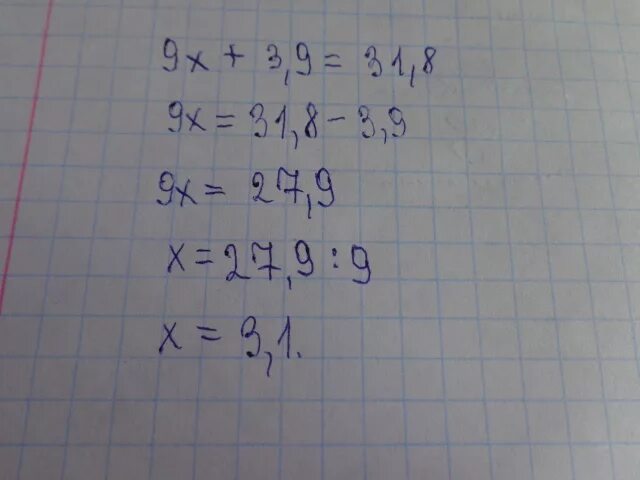 9x + 3,9 = 31,8
9x = 31,8 - 3,9
9x = 27,9
x = 27,9 : 9
x = 3,1.